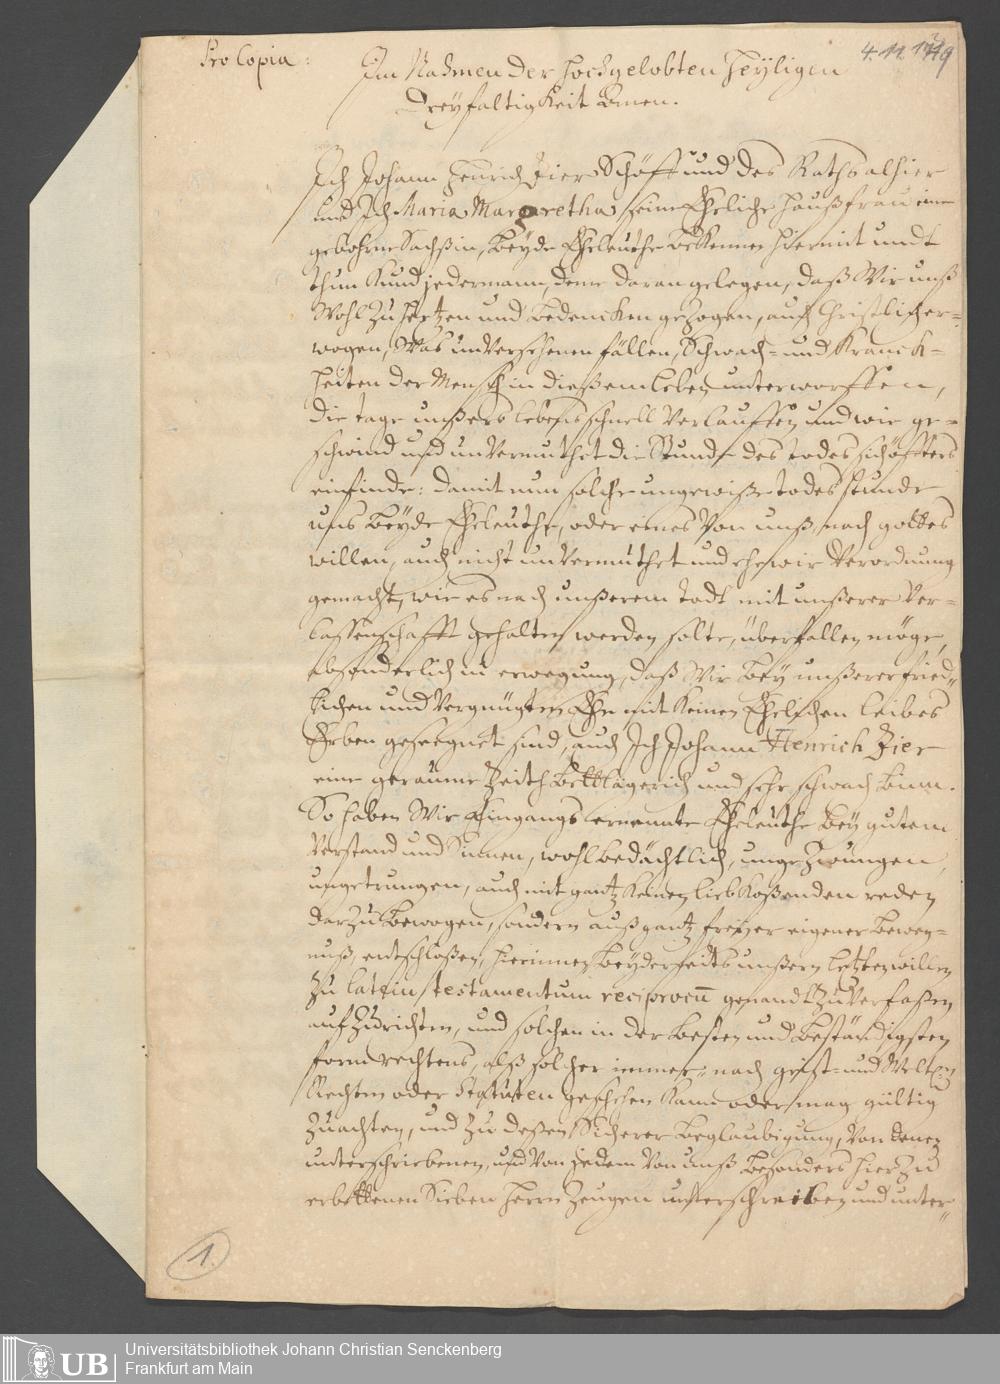 Pro Copia:
4. 11. 1719
Im Nahmen der hochgelobten Heyligen
Dreyfaltigkeit Amen.
Ich Johann Henrich Zier Schöff und des Raths alhier
und Ich Maria Margaretha, seine Eheliche Haußfrau eine
gebohrne Sachßin, beyde Eheleuthe bekennen hiermit undt
thun kund jedermann, deme daran gelegen, daß Wir unß
Wohl zu Hertzen und bedencken gezogen, auch Christlich er-
wogen, Was unversehenen fällen, Schwach- und Kranck-
heiten der Mensch in dießem leben unterworffen,
die tage unßers lebens schnell verlauffen und wie ge-
schwind und unvermuthet die Stunde des todes sich öffters
einfinde: damit nun solche ungewiße todes stunde
uns beyde Eheleuthe, oder eines von unß, nach gottes
willen, auch nicht unvermuthet und ehe wir Verordnung
gemacht, wie es nach unßerem todt mit unßerer Ver-
lassenschafft gehalten werden solte, überfallen möge,
absonderlich in erwegung, daß Wir bey unßerer fried-
lichen und Vergnügten Ehe mit keinen Ehelichen leibes
Erben geseegnet sind, auch Ich Johann Henrich Zier
eine geraume Zeith bettlägerich und sehr schwach binn.
So haben Wir Eingangs ernannte Eheleuthe bey gutem
Verstand und Sinnen, wohlbedächtlich, ungezwungen,
ungetrungen, auch mit gantz keinen liebkoßenden reden
darzu bewogen, sondern auß gantz freyer eigener beweg-
nuß, entschloßen, hierinnen beyderseits unßern letzten willen
zu latein testamentum reciprocum genandt zu Verfaßen
aufzurichten, und solchen in der besten und beständigsten
form rechtens, alß solcher immer nach geist- und Weltl.
Rechten oder Statuten geschehen kann oder mag gültig
zu achten, und zu deßen Sicherer beglaubigung, von denen
unterschriebenen, und von jedem von unß besonders hierzu
erbettenen Sieben Herrn Zeugen unterschreiben und unter-
1.
UB
Universitätsbibliothek Johann Christian Senckenberg
Frankfurt am Main